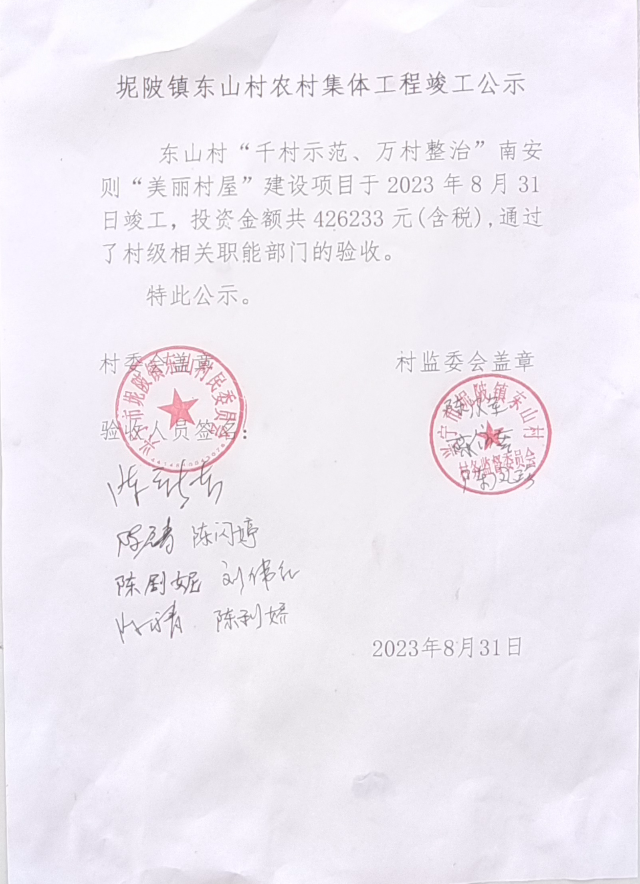 坭陂镇东山村农村集体工程竣工公示
东山村“千村示范、万村整治”南安
则“美丽村屋”建设项目于 2023 年 8 月 31
日竣工，投资金额共 426233 元(含税),通过
了村级相关职能部门的验收。
特此公示。
村委会盖章
村监委会盖章
兴宁市坭陂镇东山村民委员会
兴宁市坭陂镇东山村
村务监督委员会
验收人员签名：
陈闪婷
陈剧妮 刘伟红
陈利娇
2023年8月31日